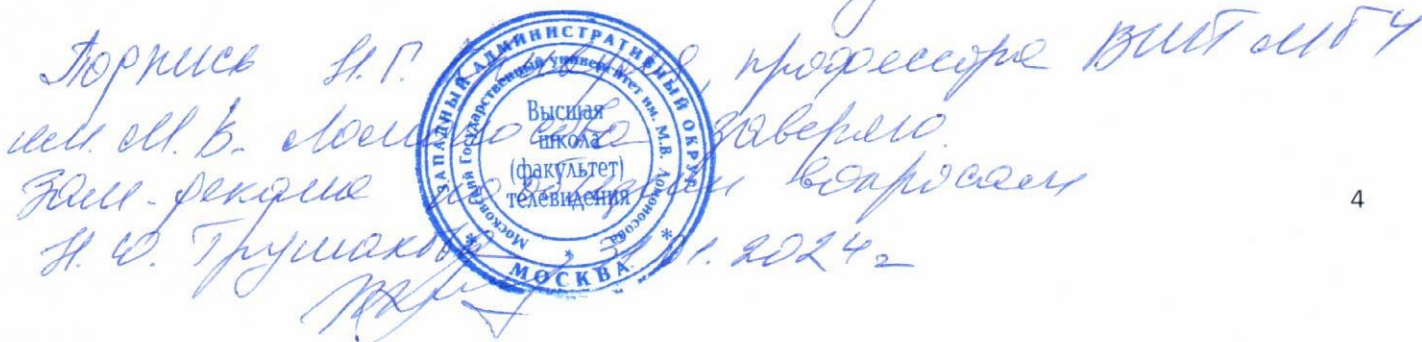 Подпись Н.Г. профессора ВШТ МГУ
им. М.В. Ломоносова заверяю.
Зам. декана по общим вопросам
Н.Ю. Трушакова 31.01.2024 г
ЗАПАДНЫЙ АДМИНИСТРАТИВНЫЙ ОКРУГ
МОСКВА
Московский Государственный университет им. М.В. Ломоносова
Высшая
школа
(факультет)
телевидения
4